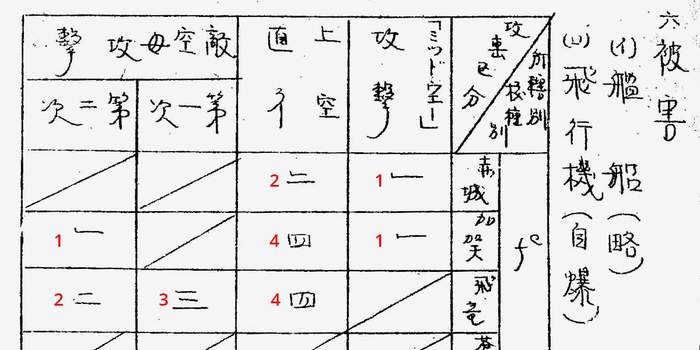 六被害
(イ)艦船(略)
(ロ)飛行機(自爆)
所轄別
機種別
攻撃区分
「ミッドウェー」攻撃
上空
直
敵空母攻撃
第一次
第二次
fc
赤城
1一
2二
加賀
1一
4四
1一
飛竜
4四
3三
2二